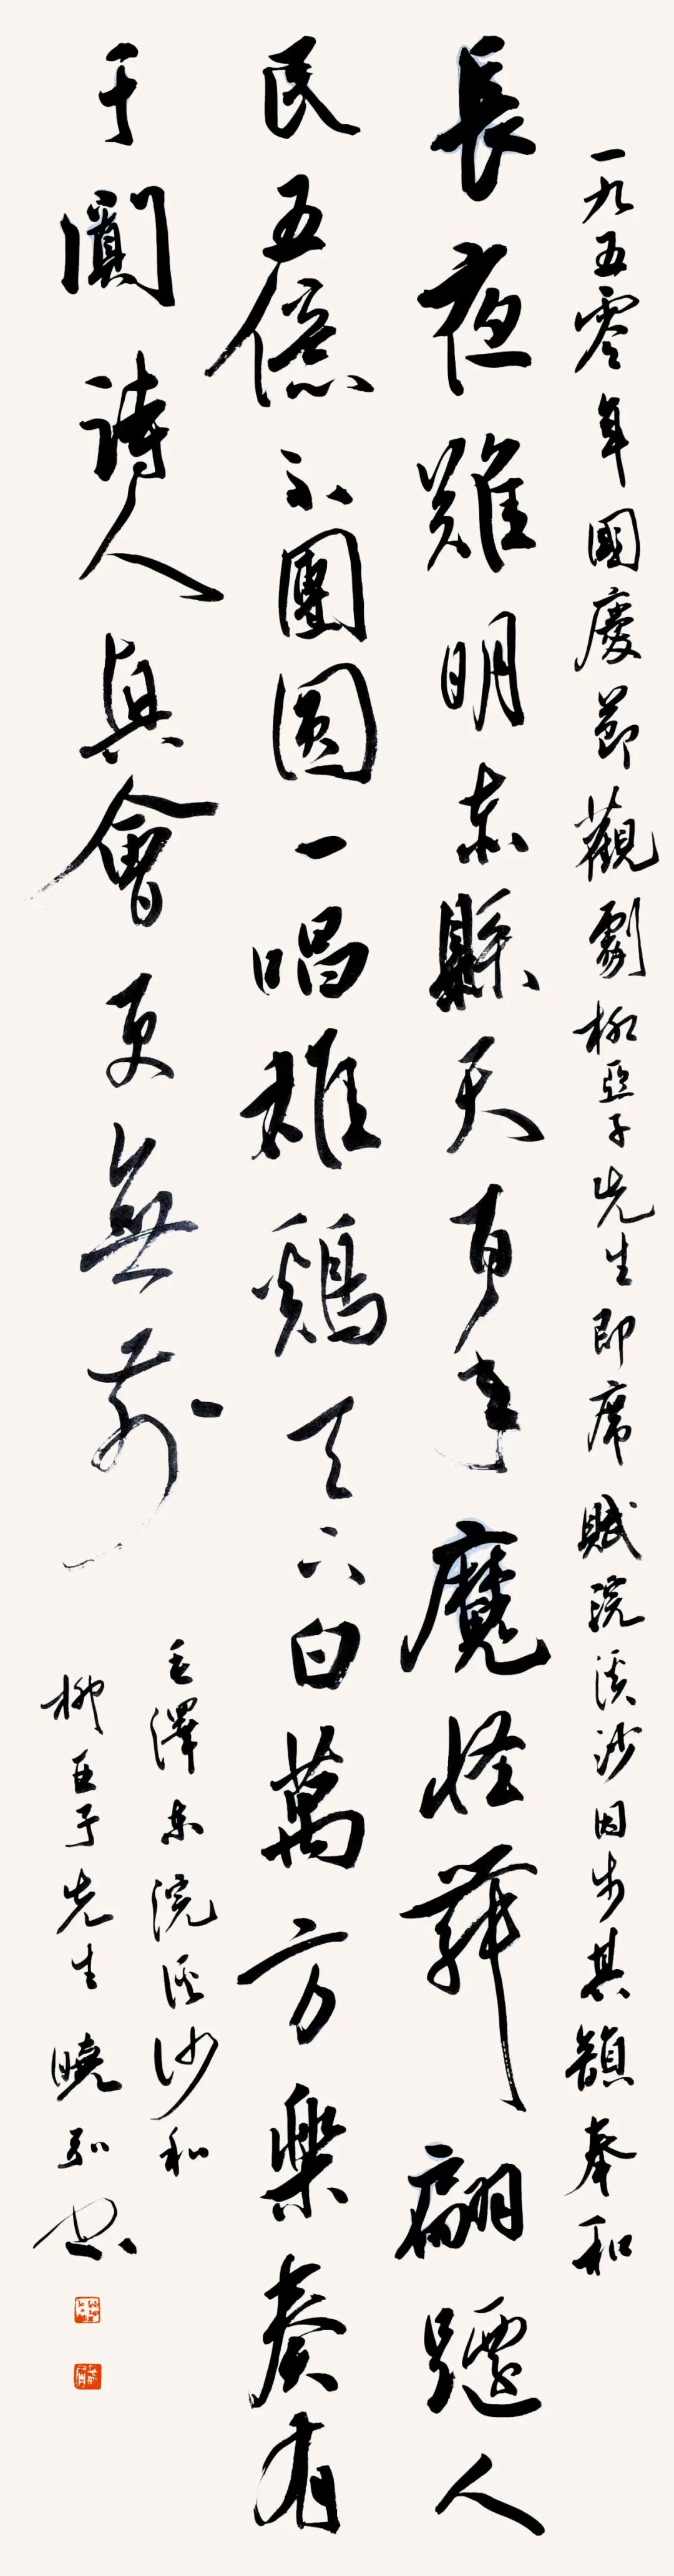 一九五零年國慶節觀劇柳亞子先生即席賦浣溪沙因步其韻奉和
長夜難明赤縣天百年魔怪舞翩躚人
民五億不團圓一唱雄鷄天下白萬方樂奏有
于闐詩人興會更無前
毛澤東浣溪沙和
柳亞子先生曉弘書